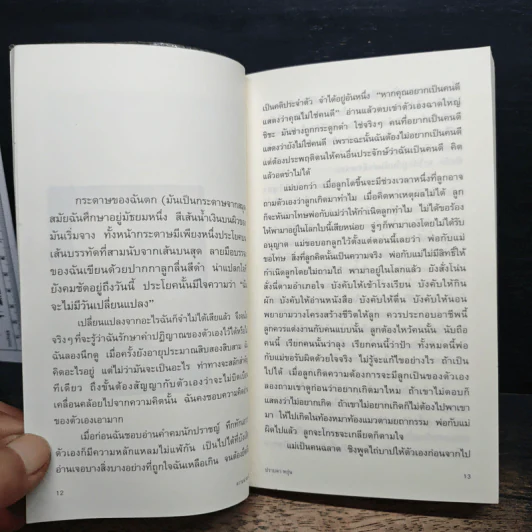 กระดาษของฉันตก (มันเป็นกระดาษจากสมุด
สมัยฉันศึกษาอยู่มัธยมหนึ่ง สีเส้นน้ำเงินบนผิวของ
มันเริ่มจาง ทั้งหน้ากระดาษมีเพียงหนึ่งประโยค
เส้นบรรทัดที่สามนับจากเส้นบนสุด ลายมือบรรจง
ของฉันเขียนด้วยปากกาลูกลื่นสีดำ น่าแปลกใจ
ยังคมชัดอยู่ถึงวันนี้ ประโยคนั้นมีใจความว่า
จะไม่มีวันเปลี่ยนแปลง"
เปลี่ยนแปลงจากอะไรฉันก็จำไม่ได้เสียแล้ว
จริงๆ ที่จะรู้ว่าฉันรักษาคำปฏิญาณของตัวเองไว้ได้
ฉันลองนึกดู เมื่อครั้งยังอายุประมาณสิบสองสิบสาม
คิดอะไรอยู่ แต่ไม่ว่ามันจะเป็นอะไร ท่าทางจะสลักสำคัญ
ทีเดียว ถึงขั้นต้องสัญญากับตัวเองว่าจะไม่บิดเบือน
เคลื่อนคล้อยไปจากความคิดนั้น ฉันคงชอบความคิด
ของตัวเองเอามาก
เมื่อก่อนฉันชอบอ่านคำคมนักปราชญ์
ตัวเองก็มีความหลักแหลมไม่แพ้กัน เป็นไปได้ที่
อ่านเจอบางสิ่งบางอย่างที่ถูกใจฉันเหลือเกิน
12
เป็นคติประจำตัว จำได้อยู่อันหนึ่ง "หากคุณอยากเป็นคนดี
แสดงว่าคุณไม่ใช่คนดี" อ่านแล้วตบเข่าตัวเองฉาดใหญ่
ชิชะ มันช่างถูกกระดูกดำ ใช่จริงๆ คนที่อยากเป็นคนดี
แสดงว่ายังไม่ใช่คนดี เพราะฉะนั้นฉันต้องไม่อยากเป็นคนดี
แต่ต้องประพฤติตนให้คนอื่นประจักษ์ว่าฉันเป็นคนดี คิด
แล้วอดขำไม่ได้
แม่บอกว่า เมื่อลูกโตขึ้นจะมีช่วงเวลาหนึ่งที่ลูกอาจ
ถามตัวเองว่าลูกเกิดมาทำไม เมื่อคิดหาเหตุผลไม่ได้ ลูก
ก็จะหันมาโทษพ่อกับแม่ว่าให้กำเนิดลูกทำไม ไม่ได้ขอร้อง
ให้พามาอยู่ในโลกใบนี้เสียหน่อย จู่ๆก็พามาเองโดยไม่ได้รับ
อนุญาต แม่ขอบอกลูกไว้ตั้งแต่ตอนนี้เลยว่า พ่อกับแม่
ขอโทษ สิ่งที่ลูกคิดนั้นเป็นความจริง พ่อกับแม่ไม่มีสิทธิ์ให้
กำเนิดลูกโดยไม่ถามไถ่ พามาอยู่ในโลกแล้ว ยังสั่งโน่น
สั่งนี่ตามอำเภอใจ บังคับให้เข้าโรงเรียน บังคับให้กิน
ผัก บังคับให้อ่านหนังสือ บังคับให้ตื่น บังคับให้นอน
พยายามวางโครงสร้างชีวิตให้ลูก ควรประกอบอาชีพนี้
ลูกควรแต่งงานกับคนแบบนั้น ลูกต้องไหว้คนนั้น นับถือ
คนนี้ เรียกคนนั้นว่าลุง เรียกคนนี้ว่าป้า ทั้งหมดนี้พ่อ
กับแม่ขอรับผิดด้วยใจจริง ไม่รู้จะแก้ไขอย่างไร ถ้าเป็น
ไปได้ เมื่อลูกเกิดความต้องการจะมีลูกเป็นของตัวเอง
ลองถามเขาดูก่อนว่าอยากเกิดมาไหม ถ้าเขาไม่ตอบก็
แสดงว่าไม่อยากเกิด ถ้าเขาไม่อยากเกิดก็ไม่ต้องไปพาเขา
มา ให้ไปเกิดในท้องหมาท้องแมวตามยถากรรม พ่อกับแม่
ผิดไปแล้ว ลูกจะโกรธจะเกลียดก็ตามใจ
แม่เป็นคนฉลาด ชิงพูดไถ่บาปให้ตัวเองก่อนจากไป
ปราบดา หยุ่น
13